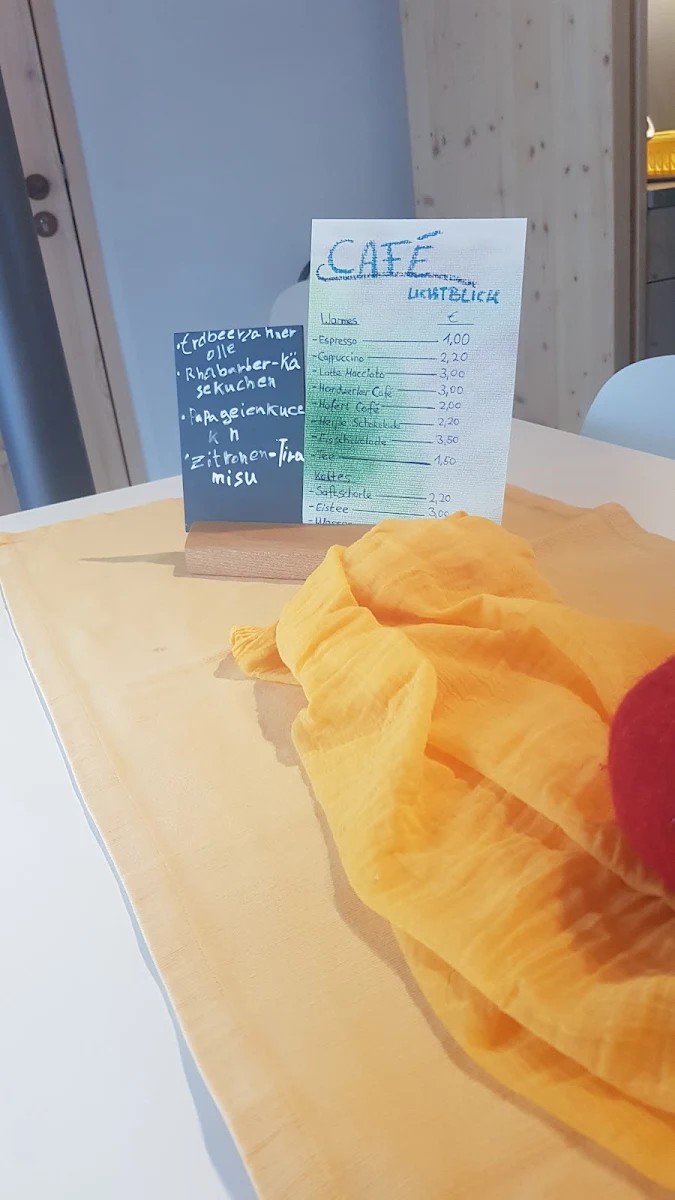 ·Erdbeerzahner
olle
·Rhabarber-Kä
sekuchen
·Papageienkuce
k n
·Zitronen-Tira
misu
CAFÉ
LICHTBLICK
Warmes €
-Espresso 1,00
-Cappuccino 2,20
-Latte Macciato 3,00
-Handwerker Café 3,00
-Haferl Café 2,00
-Heiße Schokolade 2,20
-Eisschokolade 3,50
-Tee 1,50
Kaltes
-Saftschorle 2,20
-Eistee 3,00
-Wasser